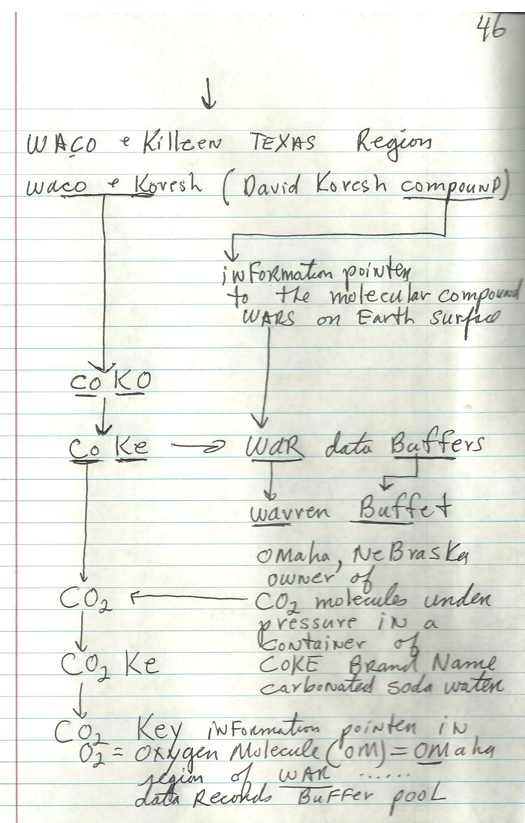 46
WACO + Killeen TEXAS Region
waco + Koresh (David Koresh compounD)
inFormation pointer
to the molecular compound
WARS on Earth Surface
Co KO
Co Ke WaR data Buffers
warren Buffet
OMaha, NeBraska
owner of
CO2 CO2 molecules under
pressure in a
container of
CO2 Ke COKE BRanD Name
carbonated soda water
CO2 Key inFormation pointer in
O2 = OXygen Molecule (OM) = OMaha
region of WAR ......
data Records Buffer pooL